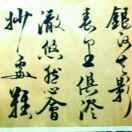 銀河共影
表里俱澄
澈悠然心會
妙處難